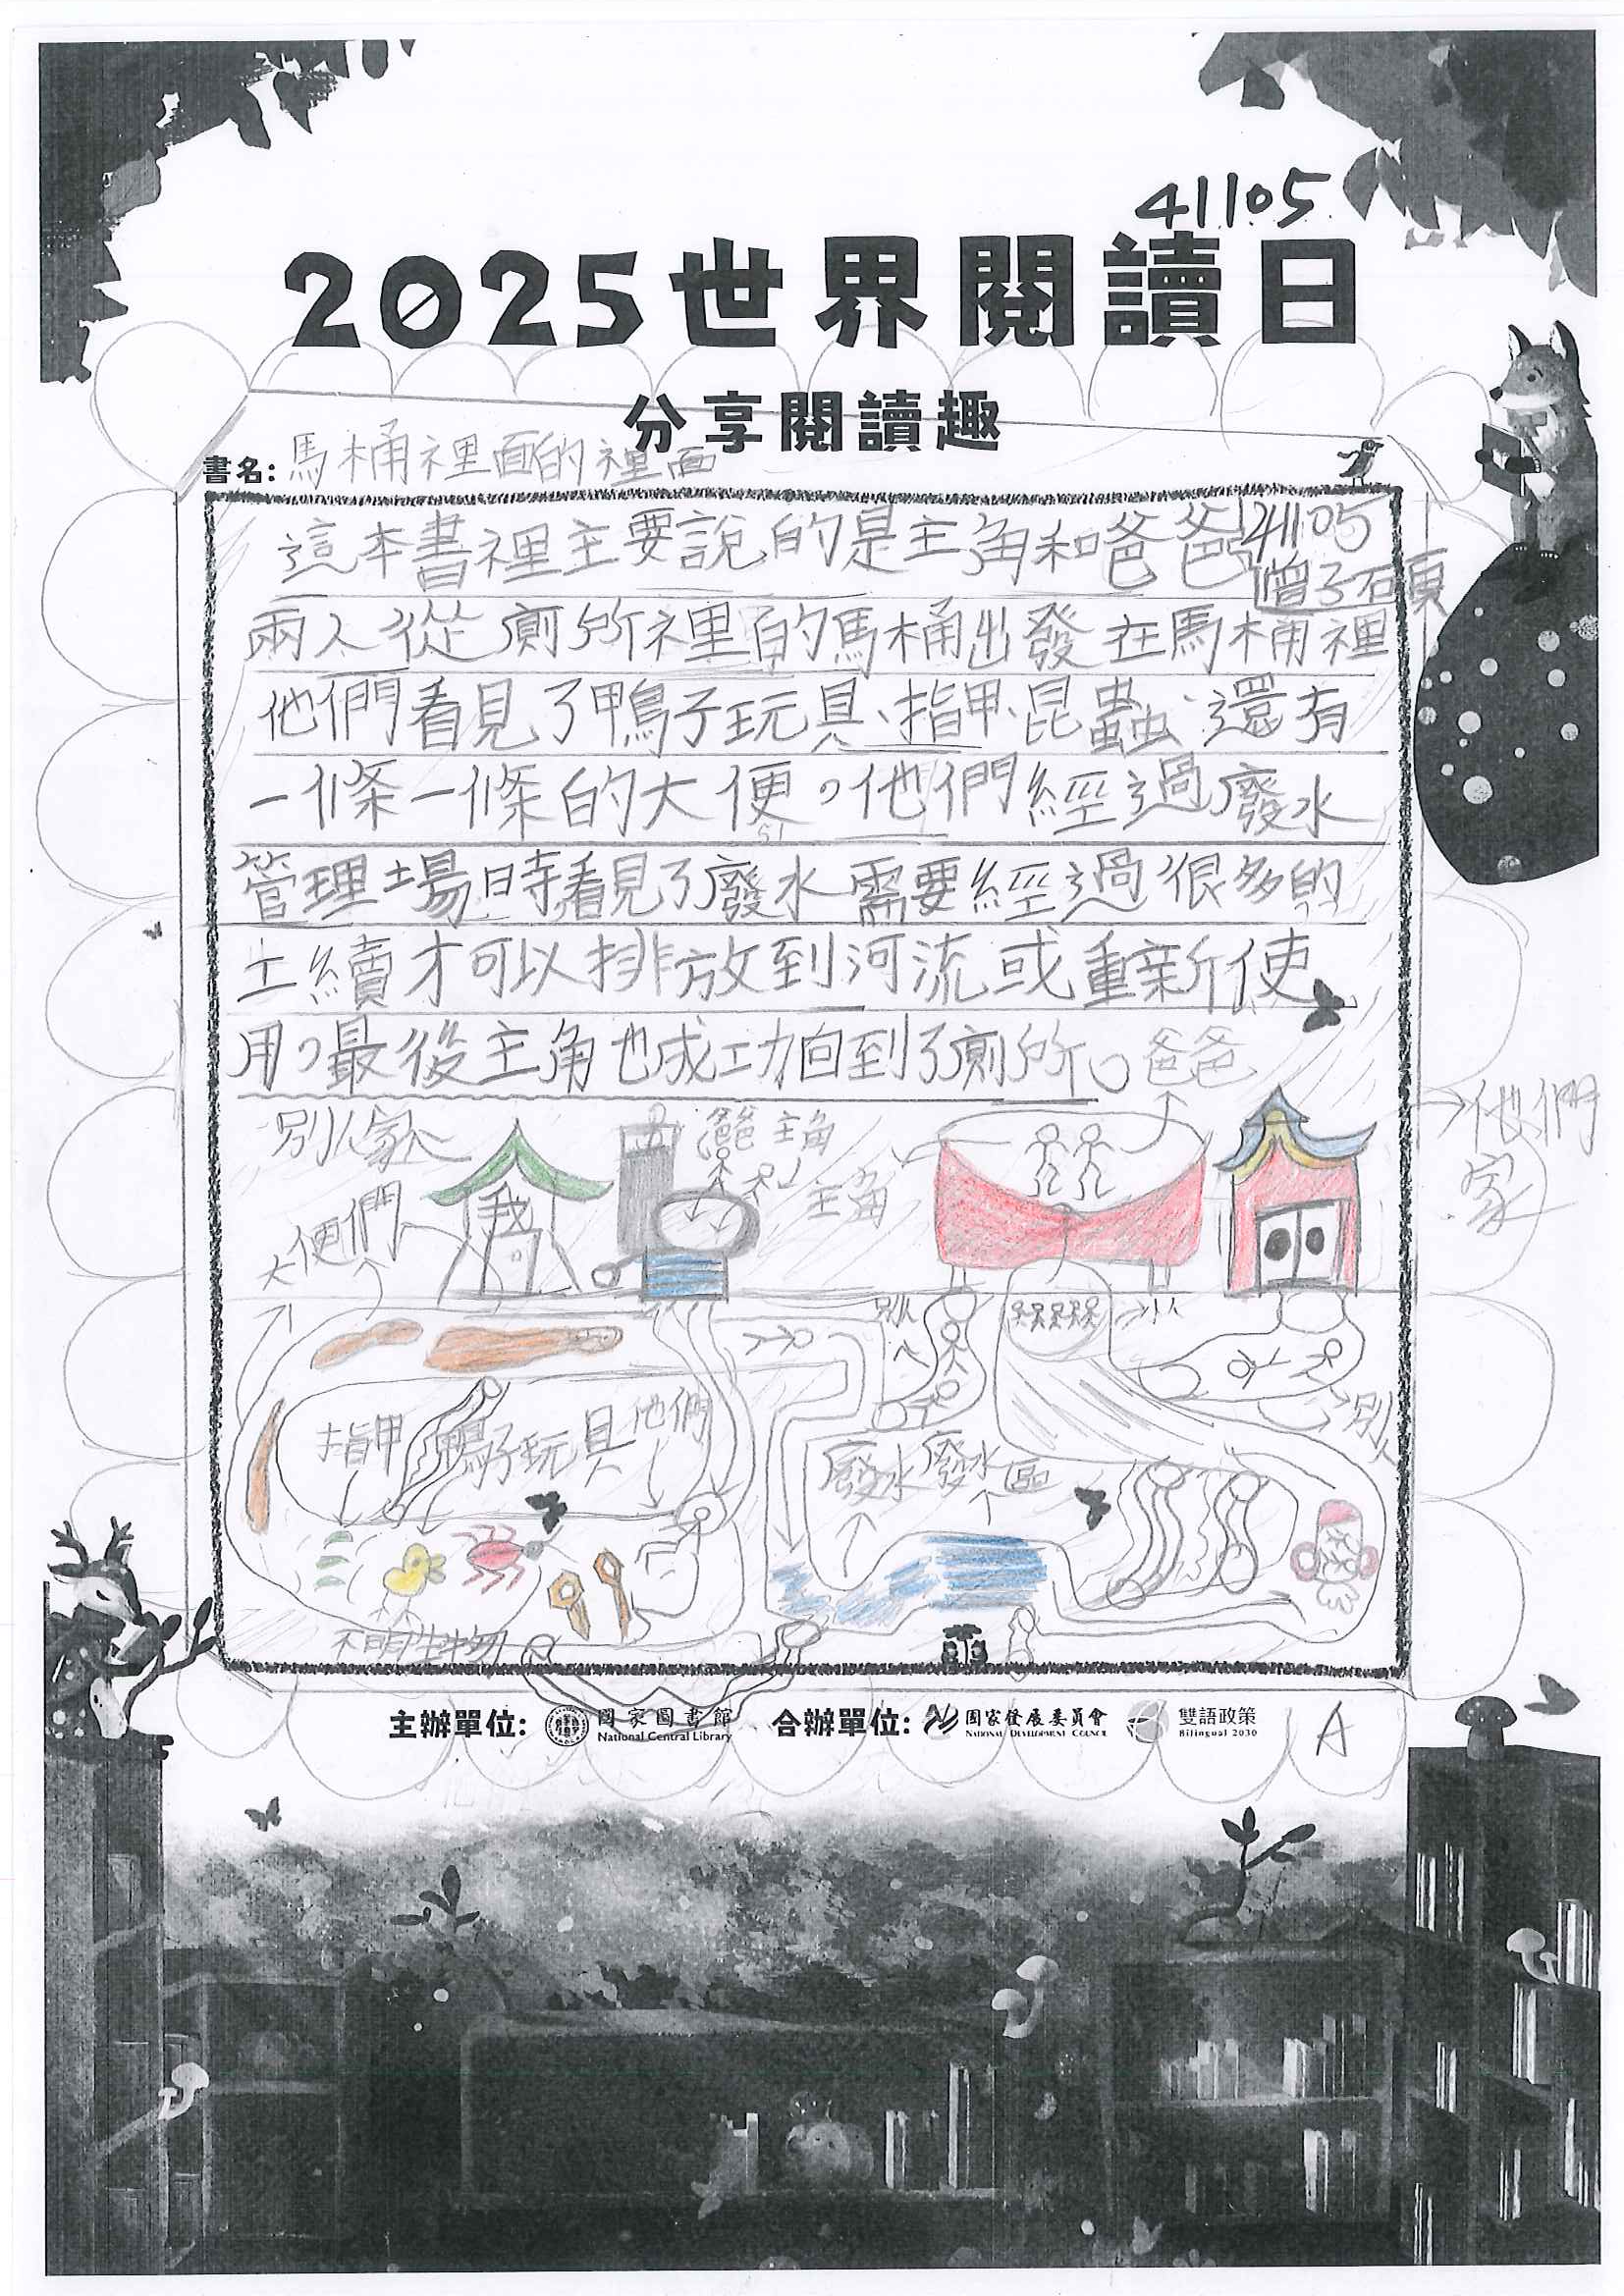 41105
2025世界閱讀日
分享閱讀趣
書名: 馬桶裡面的裡面
這本書裡主要說的是主角和爸爸
41105
曾子碩
兩人從廁所裡的馬桶出發在馬桶裡
他們看見了鴨子玩具、指甲、昆蟲、還有
一條一條的大便。他們經過廢水
管理場時看見了廢水需要經過很多的
土續才可以排放到河流或重新使
用,最後主角也成功回到了廁所。
爸爸
別人家
爸爸 主角
主角
他們
家
大便們
我
別人
別人
指甲
鴨子玩具
他們
廢水
廢水區
不明生物
主辦單位: 國家圖書館 National Central Library 合辦單位: 國家發展委員會 NATIONAL DEVELOPMENT COUNCIL 雙語政策 Bilingual 2030
A